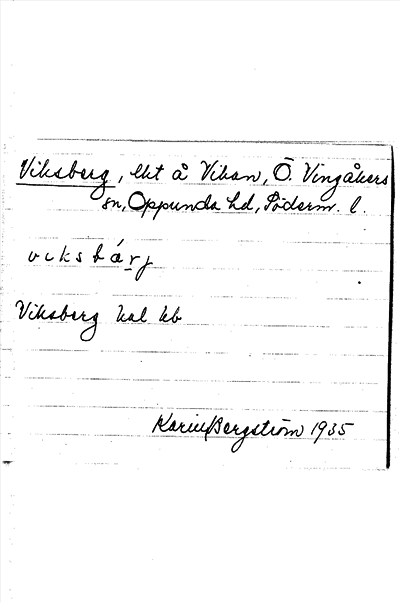 Viksberg, lht å Vikan, Ö. Vingåkers
sn, Oppunda hd, Söderm. l.
vıksbárj
Viksberg hal kb
Karin Bergström 1935